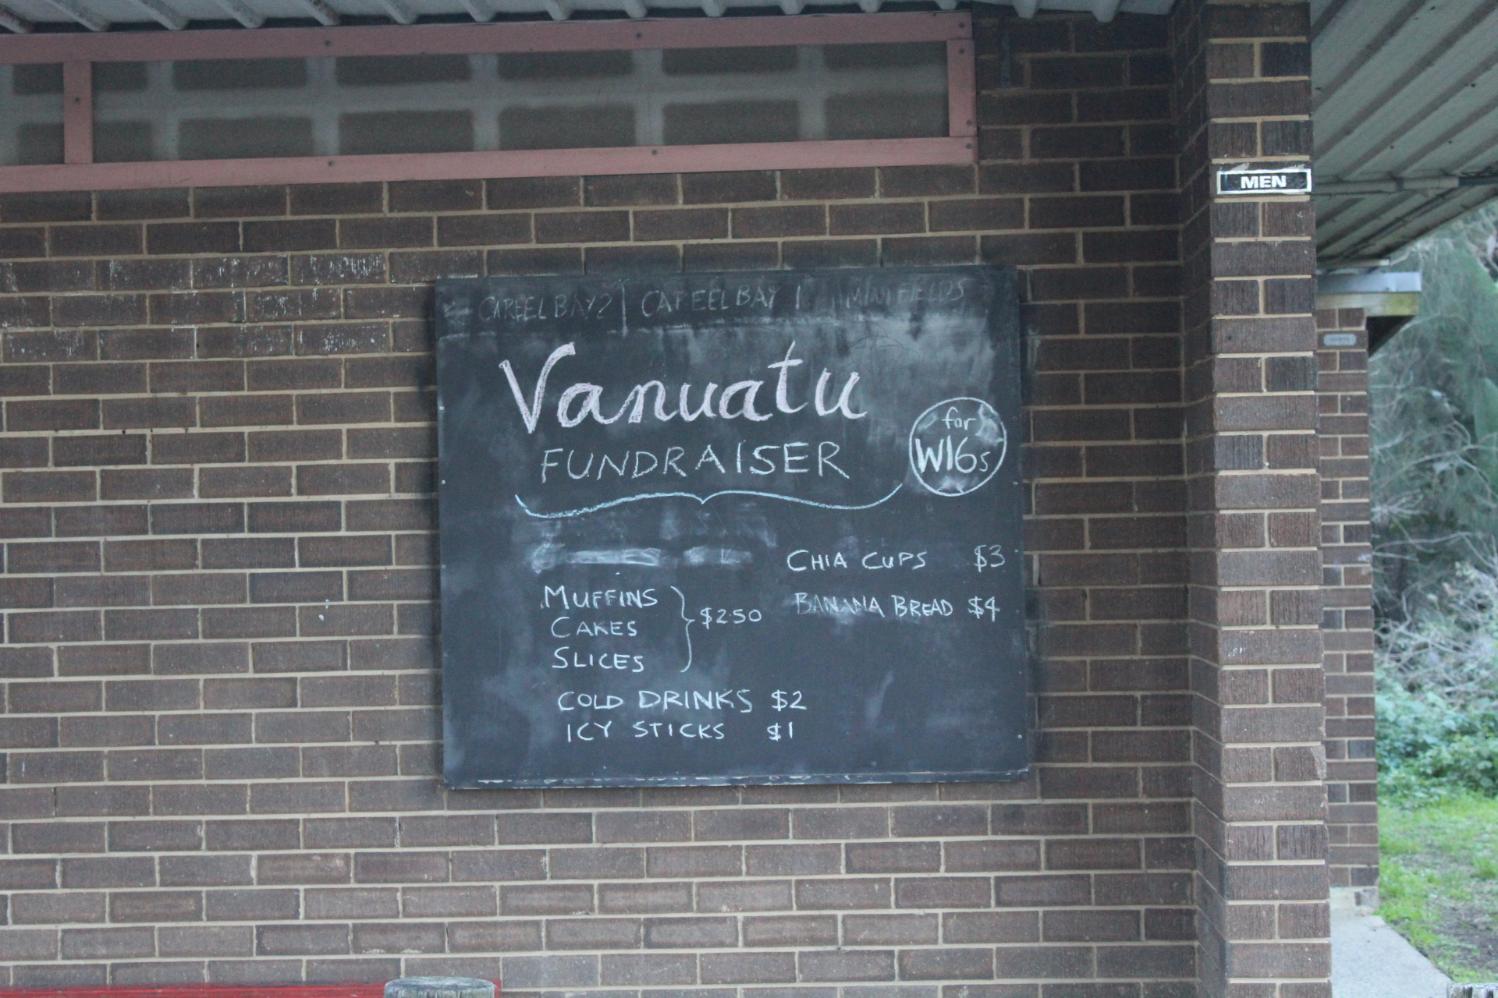 CAREEL BAY 2 | CAREEL BAY 1 MINI FIELDS
Vanuatu
FUNDRAISER
for
W16s
CHIA CUPS $3
BANANA BREAD $4
MUFFINS
CAKES
SLICES
$250
COLD DRINKS $2
ICY STICKS $1
MEN